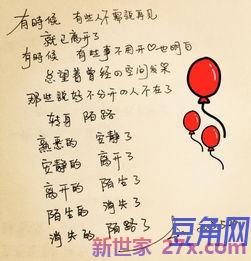 有时候 有些人不需说再见
就已离开了
有时候 有些事不用开口也明白
怎望着曾经の空间发呆
那些说好不分开の人不在了
转身 陌路
熟悉的 安静了
安静的 离开了
离开的 陌生了
陌生的 消失了
消失的 陌路了
豆角网
新世家 27x.com